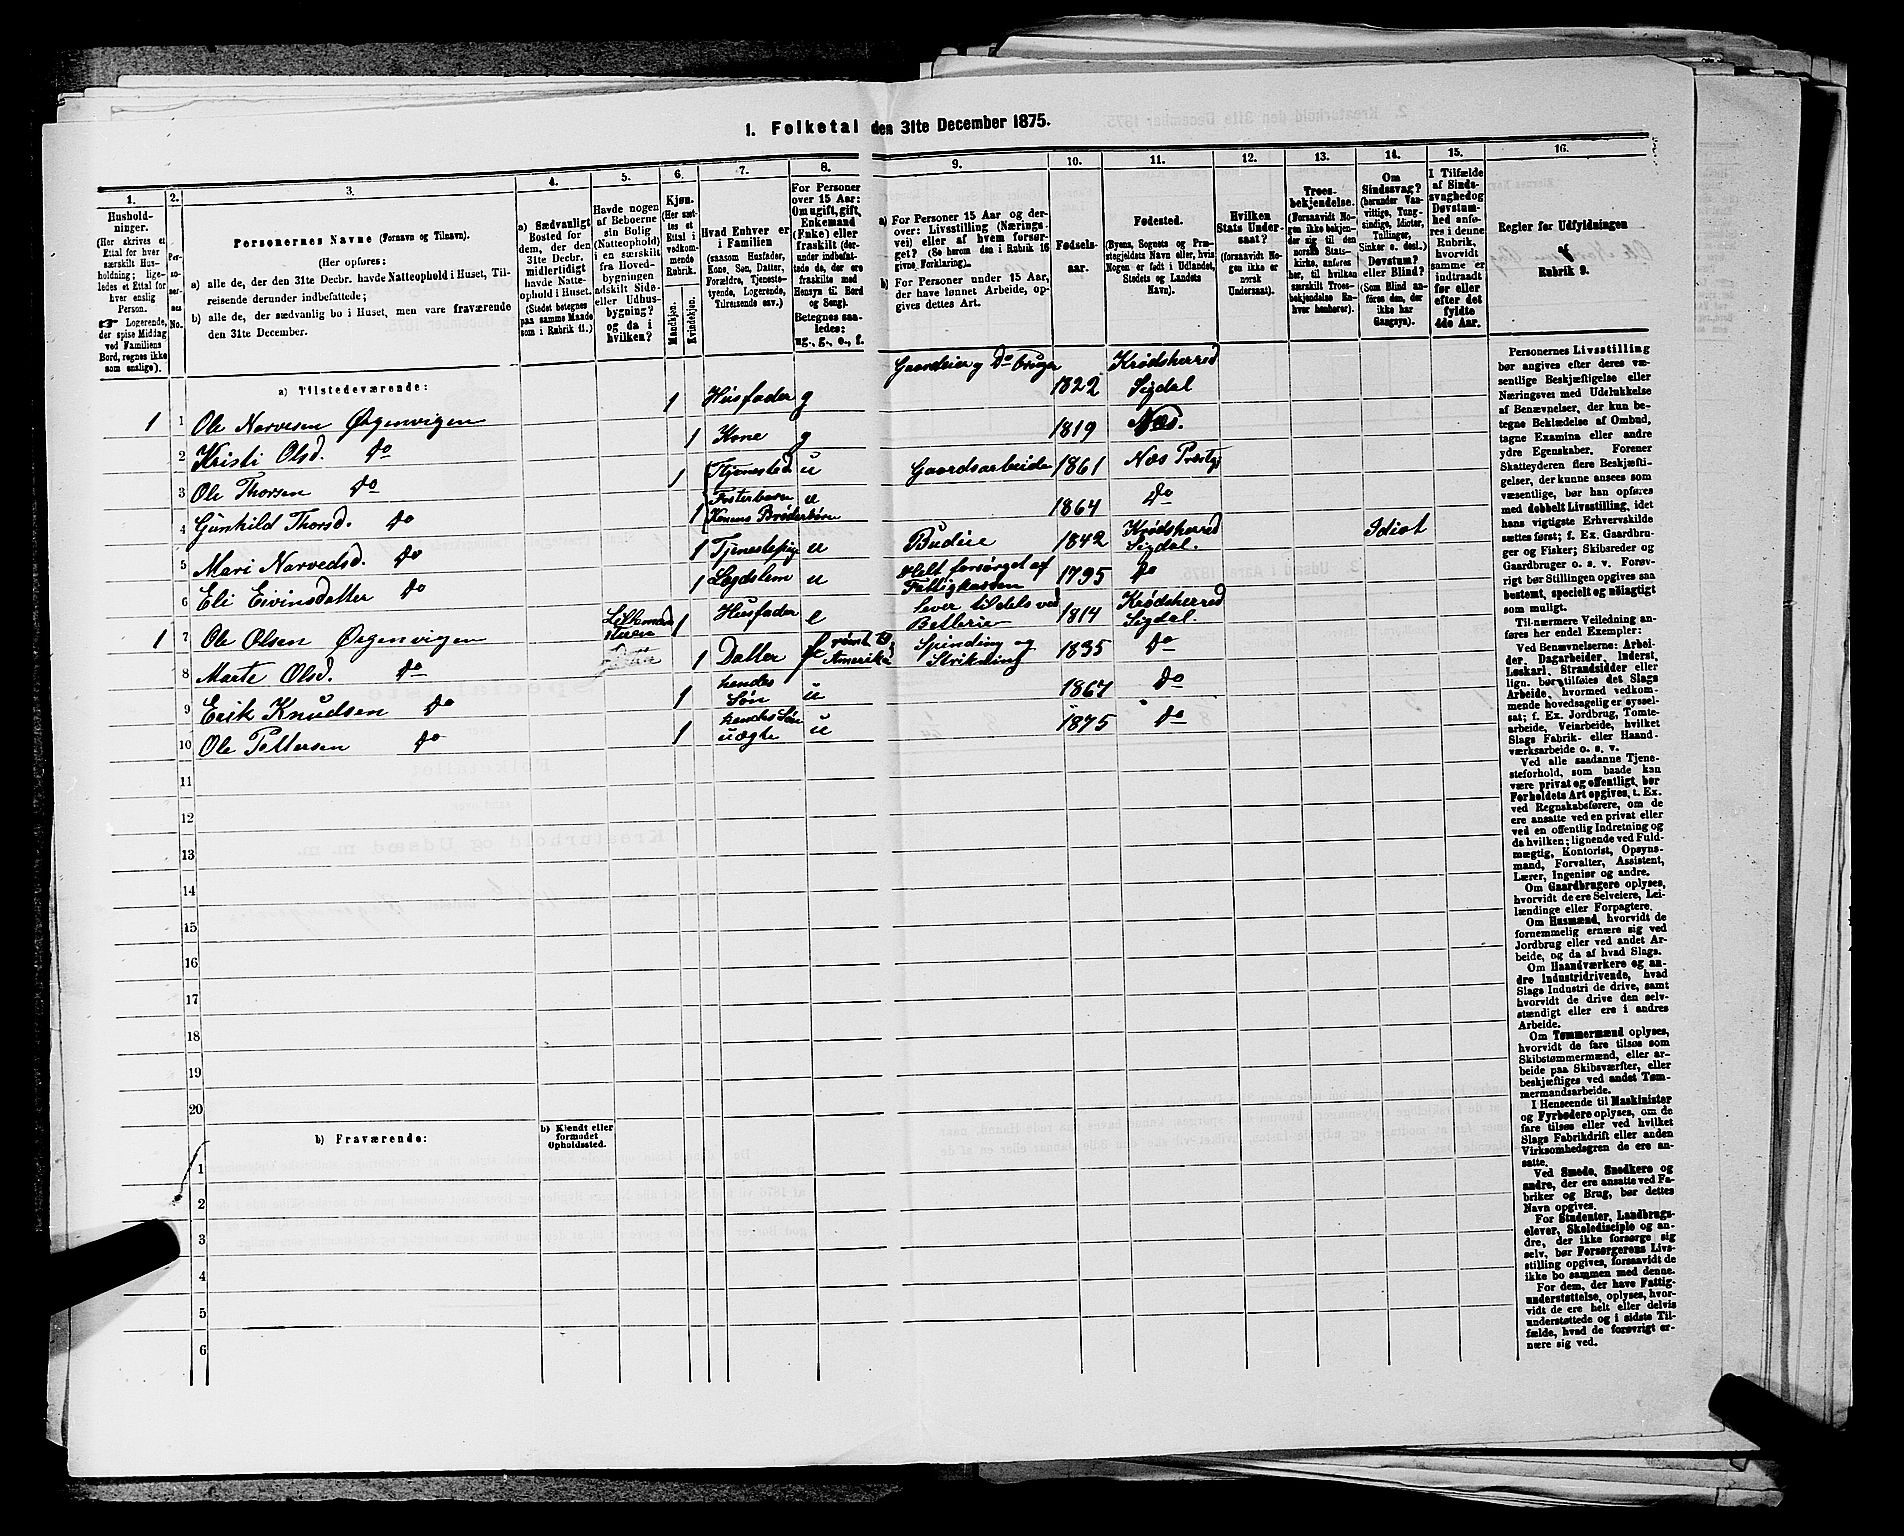 1. Folketal den 31te December 1875.
1.
2.
3.
4.
5.
6.
7.
8.
9.
10.
11.
12.
13.
14.
15.
16.
Husholdninger.
(Her skrives et Ettal for hver særskilt Husholdning; ligeledes et Ettal for hver enslig Person.
☞ Logerende, der spise Middag ved Familiens Bord, regnes ikke som enslige).
Personernes No.
Personernes Navne (Fornavn og Tilnavn).
(Her opføres:
a) alle de, der den 31te Decbr. havde Natteophold i Huset, Tilreisende derunder indbefattede;
b) alle de, der sædvanlig bo i Huset, men vare fraværende den 31te December.
a) Sædvanligt Bosted for dem, der den 31te Decbr. midlertidigt havde Natteophold i Huset. (Stedet betegnes paa samme Maade som i Rubrik 11.)
Havde nogen af Beboerne sin Bolig (Natteophold) i en særskilt fra Hovedbygningen adskilt Side- eller Udhusbygning? og da i hvilken?
Kjøn.
(Her sættes et Ettal i vedkommende Rubrik.
Mandkjøn.
Kvindekjøn.
Hvad Enhver er i Familien
(saasom Husfader, Kone, Søn, Datter, Forældre, Tjenestetyende, Logerende, Tilreisende osv.)
For Personer over 15 Aar: Om ugift, gift, Enkemand (Enke) eller fraskilt (derunder indbefattede de, der ere fraskilte med Hensyn til Bord og Seng). Betegnes saaledes: ug., g., e., f.
a) For Personer 15 Aar og derover: Livsstilling (Næringsvei) eller af hvem forsørget? (Se herom den i Rubrik 16 givne Forklaring).
b) For Personer under 15 Aar, der have lønnet Arbeide, opgives dettes Art.
Fødselsaar.
Fødested.
(Byens, Sognets og Præstegjeldets Navn eller, hvis Nogen er født i Udlandet, Stedets og Landets Navn).
Hvilken Stats Undersaat?
(forsaavidt Nogen ikke er norsk Undersaat).
Troesbekjendelse.
(Forsaavidt Nogen ikke bekjender sig til den norske Statskirke, anføres her, til hvilken særskilt Troesbekjendelse Enhver henhører).
Om Sindssvag? (herunder Vanvittige, Tungsindige, Idioter, Tullinger, Sinker o. desl.) Døvstum? eller Blind? (Som Blind anføres den, der ikke har Gangsyn).
I Tilfælde af Sindssvaghed og Døvstumhed anføres i denne Rubrik, hvorvidt samme er indtraadt før eller efter det fyldte 4de Aar.
Regler for Udfyldningen
af
Rubrik 9.
a) Tilstedeværende:
1 1 Ole Narvesen Ørgenvigen 1 Husfader g Gaardeier og Do bruger 1822 Krødsherred Sigdal
2 Kristi Olsd. Do 1 Kone g 1819 Næs.
3 Ole Thorsen Do 1 Tjenested u Gaardsarbeide 1861 Næs Præstgj
4 Gunhild Thorsd. Do 1 Fosterbarn Konens Broderbørn u 1864 Do
5 Mari Narvedsd. Do 1 Tjenestepig u Budeie 1842 Krødsherred Sigdal. Idiot
6 Eli Eivinsdatter Do 1 Lægdslem u Helt forsørget af Fattigkassen 1795 Do
1 7 Ole Olsen Ørgenvigen 1 Husfader e Lever tildels ved Betlerie 1814 Krødsherred Sigdal.
8 Marte Olsd. Do 1 Datter rømt til Amerika Spinding og Strikning 1835 Do
9 Erik Knudsen Do 1 hendes Søn u 1867 Do
10 Ole Pettersen Do 1 hendes Søn uægte u 1875 Do
11
12
13
14
15
16
17
18
19
20
b) Fraværende:
b) Kjendt eller formodet Opholdssted.
1
2
3
4
5
6
Personernes Livsstilling
bør angives efter deres væsentlige Beskjæftigelse eller
Næringsvei med Udelukkelse
af Benævnelser, der kun betegne Beklædelse af Ombud,
tagne Examina eller andre
ydre Egenskaber. Forener
Skatteyderen flere Beskjæftigelser, der kunne ansees som
væsentlige, bør han opføres
med dobbelt Livsstilling, idet
hans vigtigste Erhvervskilde
sættes først; f. Ex. Gaardbruger og Fisker; Skibsreder og
Gaardbruger o. s. v. Forøvrigt bør Stillingen opgives saa
bestemt, specielt og nøiagtigt
som muligt.
Til nærmere Veiledning anføres her endel Exempler:
Ved Benævnelserne: Arbeider, Dagarbeider, Inderst,
Løskarl, Strandsidder eller
lign. bør tilføies det Slags
Arbeide, hvormed vedkommende hovedsagelig er sysselsat; f. Ex. Jordbrug, Tomtearbeide, Veiarbeide, hvilket
Slags Fabrik- eller Haandværksarbeide o. s. v.
Ved alle saadanne Tjenesteforhold, som baade kan
være privat og offentligt, bør
Forholdets Art opgives, t. Ex.
ved Regnskabsførere, om de
ere ansatte ved en privat eller
ved en offentlig Indretning og
da hvilken; lignende ved Fuldmægtig, Kontorist, Opsynsmand, Forvalter, Assistent,
Lærer, Ingeniør og andre.
Om Gaardbrugere oplyses,
hvorvidt de ere Selveiere, Leilændinge eller Forpagtere.
Om Husmænd, hvorvidt de
fornemmelig ernære sig ved
Jordbrug eller ved andet Arbeide, og da af hvad Slags.
Om Haandværkere og andre Industridrivende, hvad
Slags Industri de drive, samt
hvorvidt de drive den selvstændigt eller ere i andres
Arbeide.
Om Tømmermænd oplyses,
hvorvidt de fare tilsøs som
Skibstømmermænd, eller arbeide paa Skibsværfter, eller
beskjæftiges ved andet Tømmermandsarbeide.
I Henseende til Maskinister
og Fyrbødere oplyses, om de
fare tilsøs eller ved hvilket
Slags Fabrikdrift eller anden
Virksomhedsgren de ere ansatte.
Ved Smede, Snedkere og
andre, der ere ansatte ved Fabriker og Brug, bør dettes
Navn opgives.
For Studenter, Landbrugselever, Skoledisciple og andre, der ikke forsørge sig
selv, bør Forsørgerens Livsstilling opgives, forsaavidt de
ikke bo sammen med denne.
For dem, der have Fattigunderstøttelse, oplyses, hvorvidt de ere helt eller delvis
understøttede og i sidste Tilfælde, hvad de forøvrigt ernære sig ved.